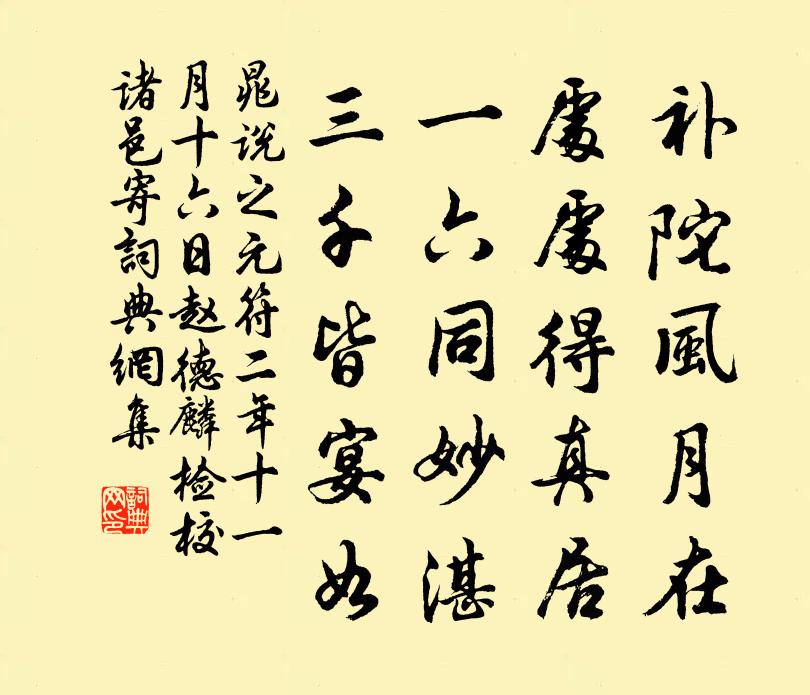 补陀風月在
處處得真居
一六同妙湛
三千皆宴如
晁説之元符二年十一
月十六日赵德麟检校
诸邑寄詞典網集
詞典网印